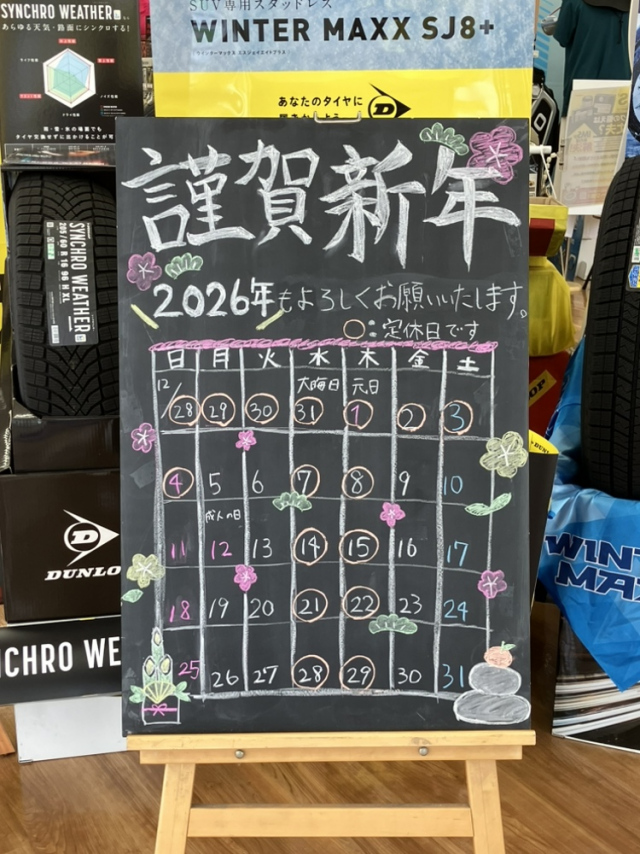 SYNCHRO WEATHER
あらゆる天気・路面にシンクロする!
SUV専用スタッドレス
WINTER MAXX SJ8+
あなたのタイヤに
DUNLOP
謹賀新年
2026年もよろしくお願いいたします。
○:定休日です
日 月 火 水 木 金 土
大晦日 元日
12/28 29 30 31 1 2 3
4 5 6 7 8 9 10
成人の日
11 12 13 14 15 16 17
18 19 20 21 22 23 24
25 26 27 28 29 30 31
SYNCHRO WEATHER
205/60 R 16 96 H XL
DUNLOP
NCHRO WE
WINT
MA